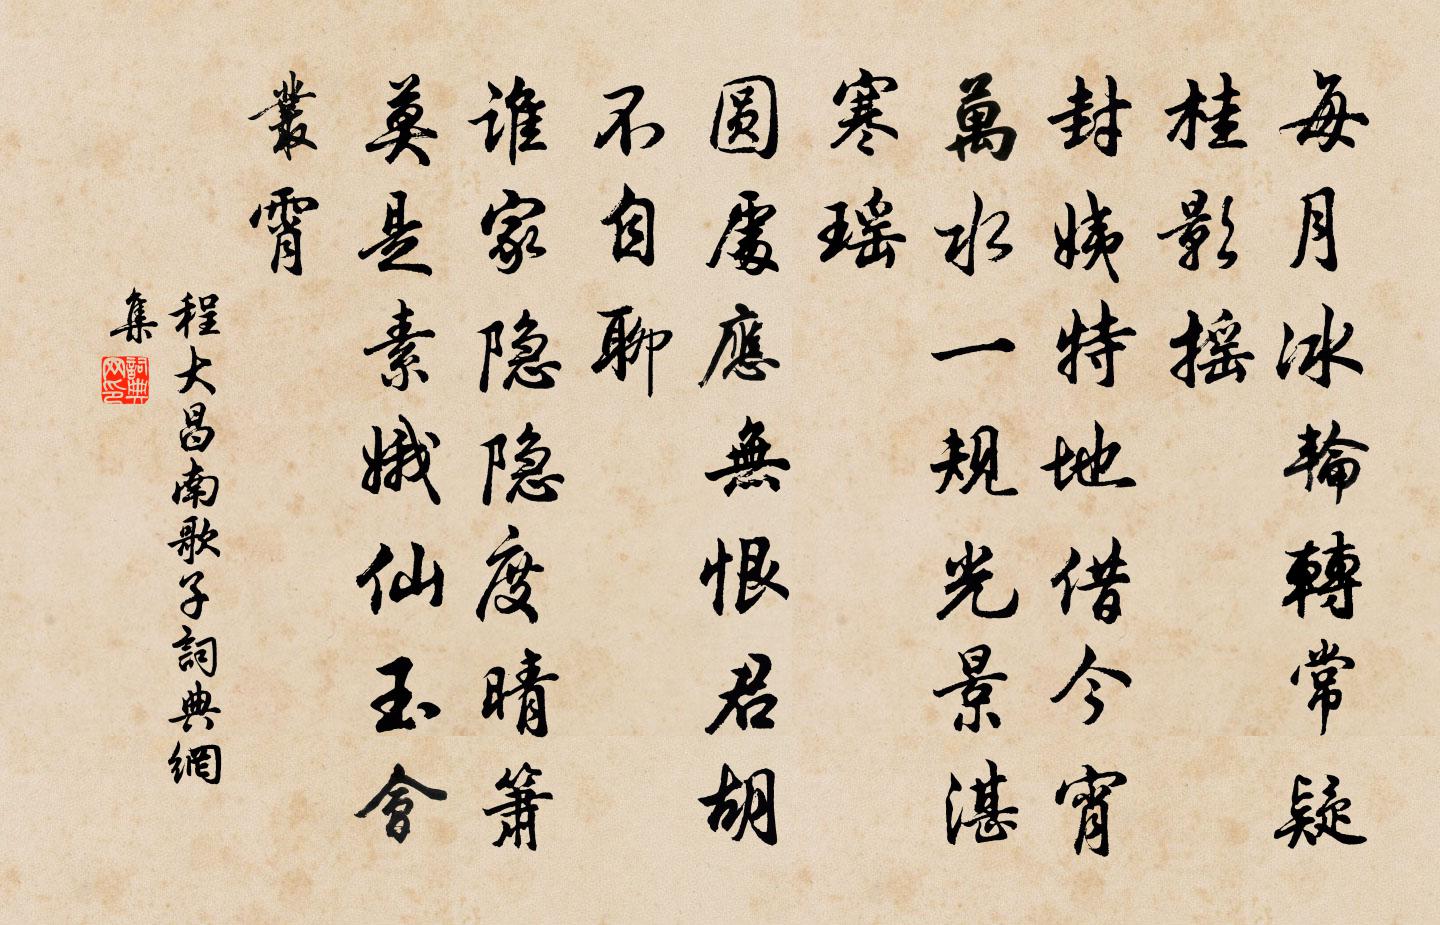 每月冰輪轉常疑
桂影摇
封姨特地借今宵
萬水一規光景湛
寒瑶
圆處應無恨君胡
不自聊
谁家隐隐度晴箫
莫是素娥仙玉會
叢霄
程大昌南歌子詞典網
集
詞典
网印